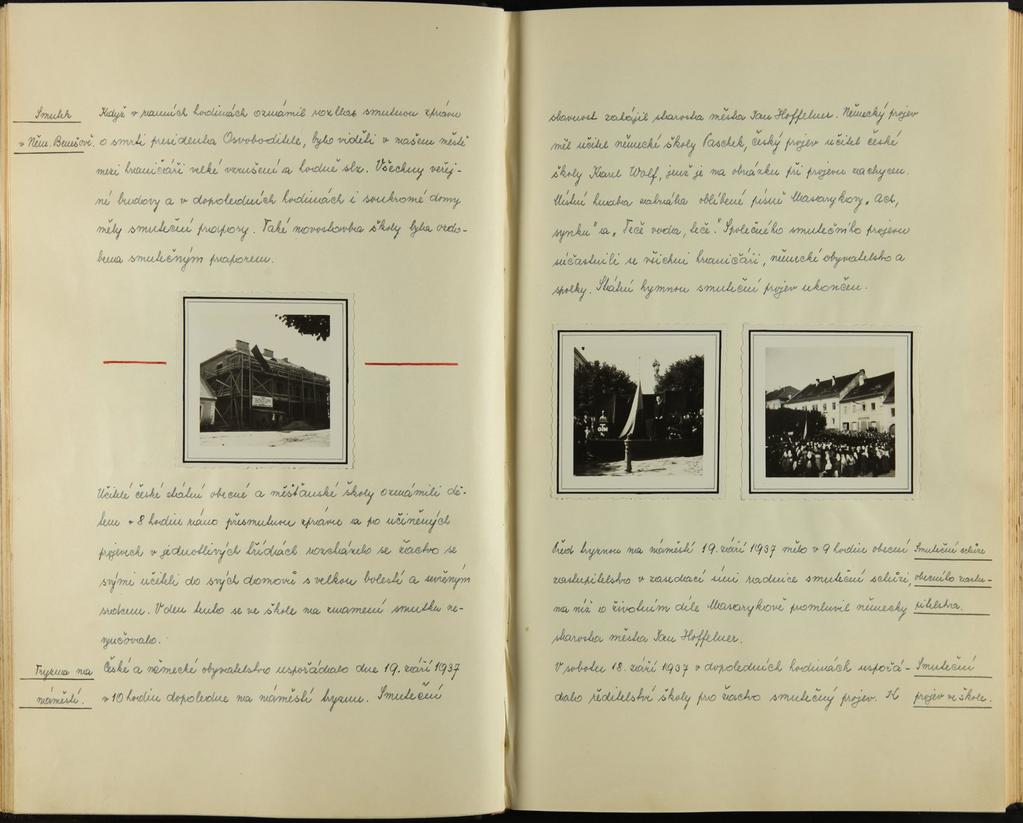 Smutek
v Něm. Benešově.
Když v ranních hodinách oznámil rozhlas smutnou zprávu
o smrti presidenta Osvoboditele, bylo viděti v našem městě
mezi hraničáři velké vzrušení a hodně slz. Všechny veřej-
né budovy a v dopoledních hodinách i soukromé domy
měly smuteční prapory. Také novostavba školy byla ozdo-
bena smutečným praporem.
Učitelé české státní obecné a měšťanské školy oznámili dě-
tem v 8 hodin ráno přesmutnou zprávu a po učiněných
projevech v jednotlivých třídách rozcházelo se žactvo se
svými učiteli do svých domovů s velkou bolestí a sevřeným
srdcem. V den tento se ve škole na znamení smutku ne-
vyučovalo.
Tryzna na
náměstí.
České a německé obyvatelstvo uspořádalo dne 19. září 1937
v 10 hodin dopoledne na náměstí tryznu. Smuteční
slavnost zahájil starosta města Jan Hoffelner. Německý projev
měl učitel německé školy Paschek, český projev učitel české
školy Karel Wolf, jenž je na obrázku při projevu zachycen.
Místní hudba zahrála oblíbené písně Masarykovy „Ach,
synku" a „Teče voda, teče". Společného smutečního projevu
súčastnili se všichni hraničáři, německé obyvatelstvo a
spolky. Státní hymnou smuteční projev ukončen.
Před tryznou na náměstí 19. září 1937 mělo v 9 hodin obecní
zastupitelstvo v zasedací síni radnice smuteční schůzi,
na níž o životním díle Masarykově promluvil německy
starosta města Jan Hoffelner.
Smuteční schůze
obecního zastu-
pitelstva.
V sobotu 18. září 1937 v dopoledních hodinách uspořá-
dalo ředitelství školy pro žactvo smutečný projev. K
Smuteční
projev ve škole.